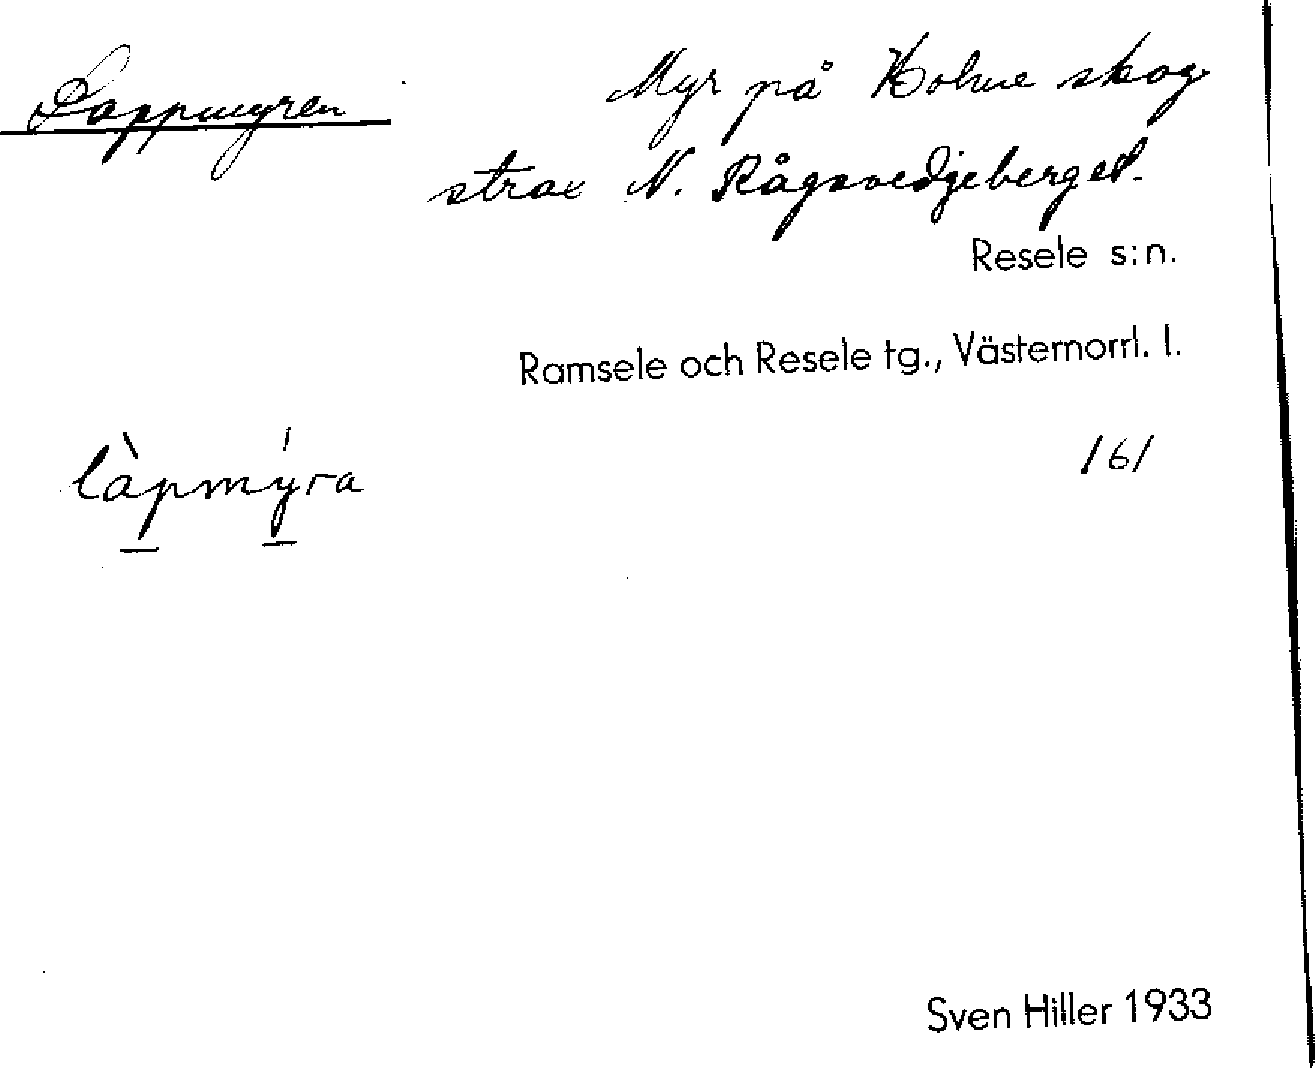 Lappmyren
Myr på Holme skog
strax N. Rågsvedjeberget.
Resele s:n.
Ramsele och Resele tg., Västernorrl. l.
làpmýra
161
Sven Hiller 1933